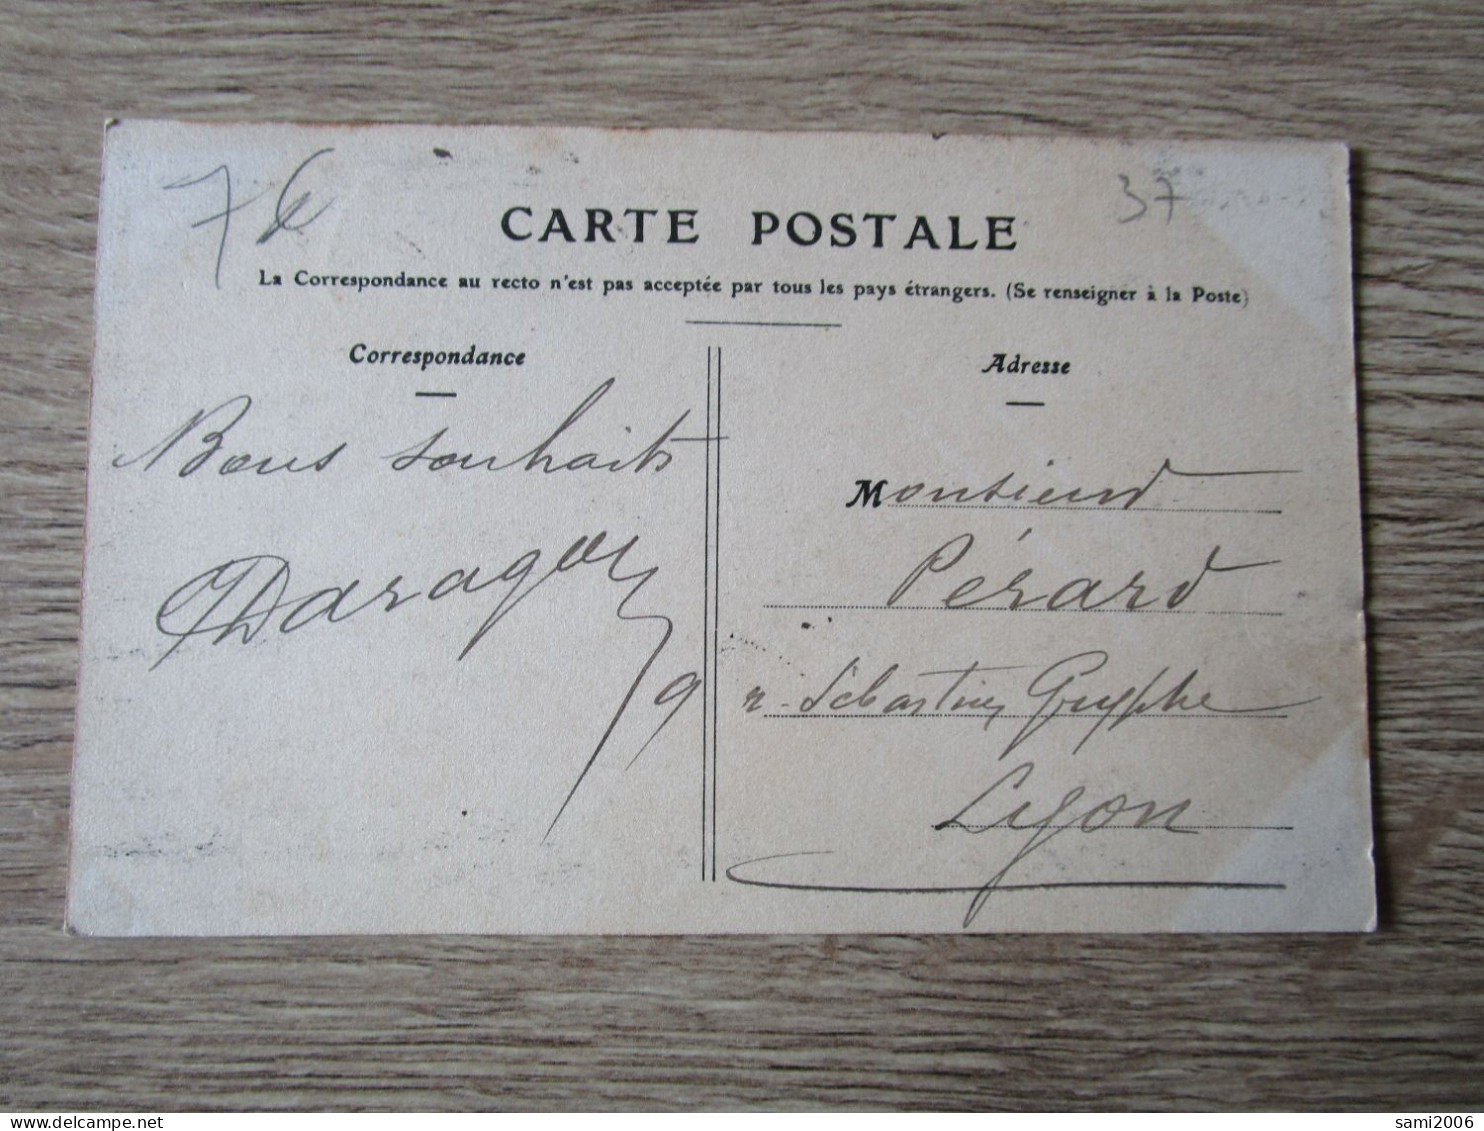 7€
37
CARTE POSTALE
La Correspondance au recto n'est pas acceptée par tous les pays étrangers. (Se renseigner à la Poste)
Correspondance
Bons souhaits
Daragon
Adresse
Monsieur
Pérard
9 r. Sébastien Gryphe
Lyon
sami2006